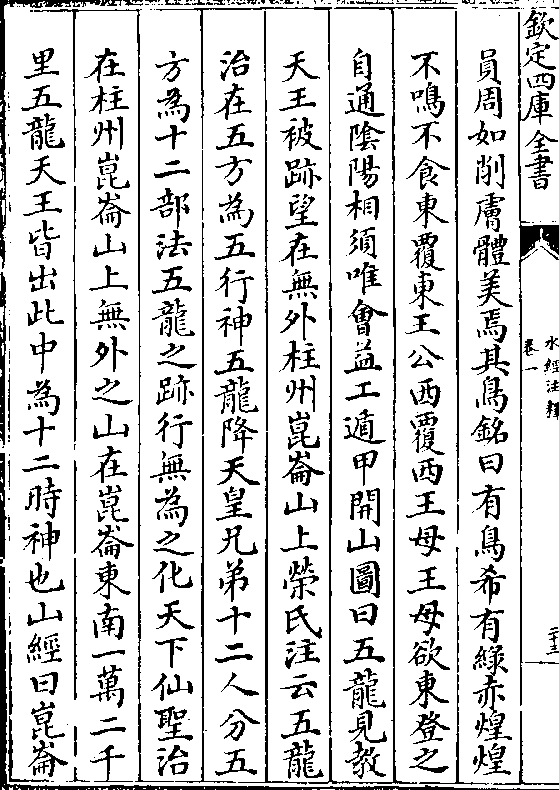 欽定四庫全書
水經注釋
卷一
員周如削膚體美焉其鳥銘曰有鳥希有緑赤煌煌
不鳴不食東覆東王公西覆西王母王母欲東登之
自通隂陽相須唯㑹益工遁甲開山圖曰五龍見教
天王被跡望在無外柱州崑崙山上榮氏注云五龍
治在五方為五行神五龍降天皇兄弟十二人分五
方為十二部法五龍之跡行無為之化天下仙聖治
在柱州崑崙山上無外之山在崑崙東南一萬二千
里五龍天王皆出此中為十二時神也山經曰崑崙